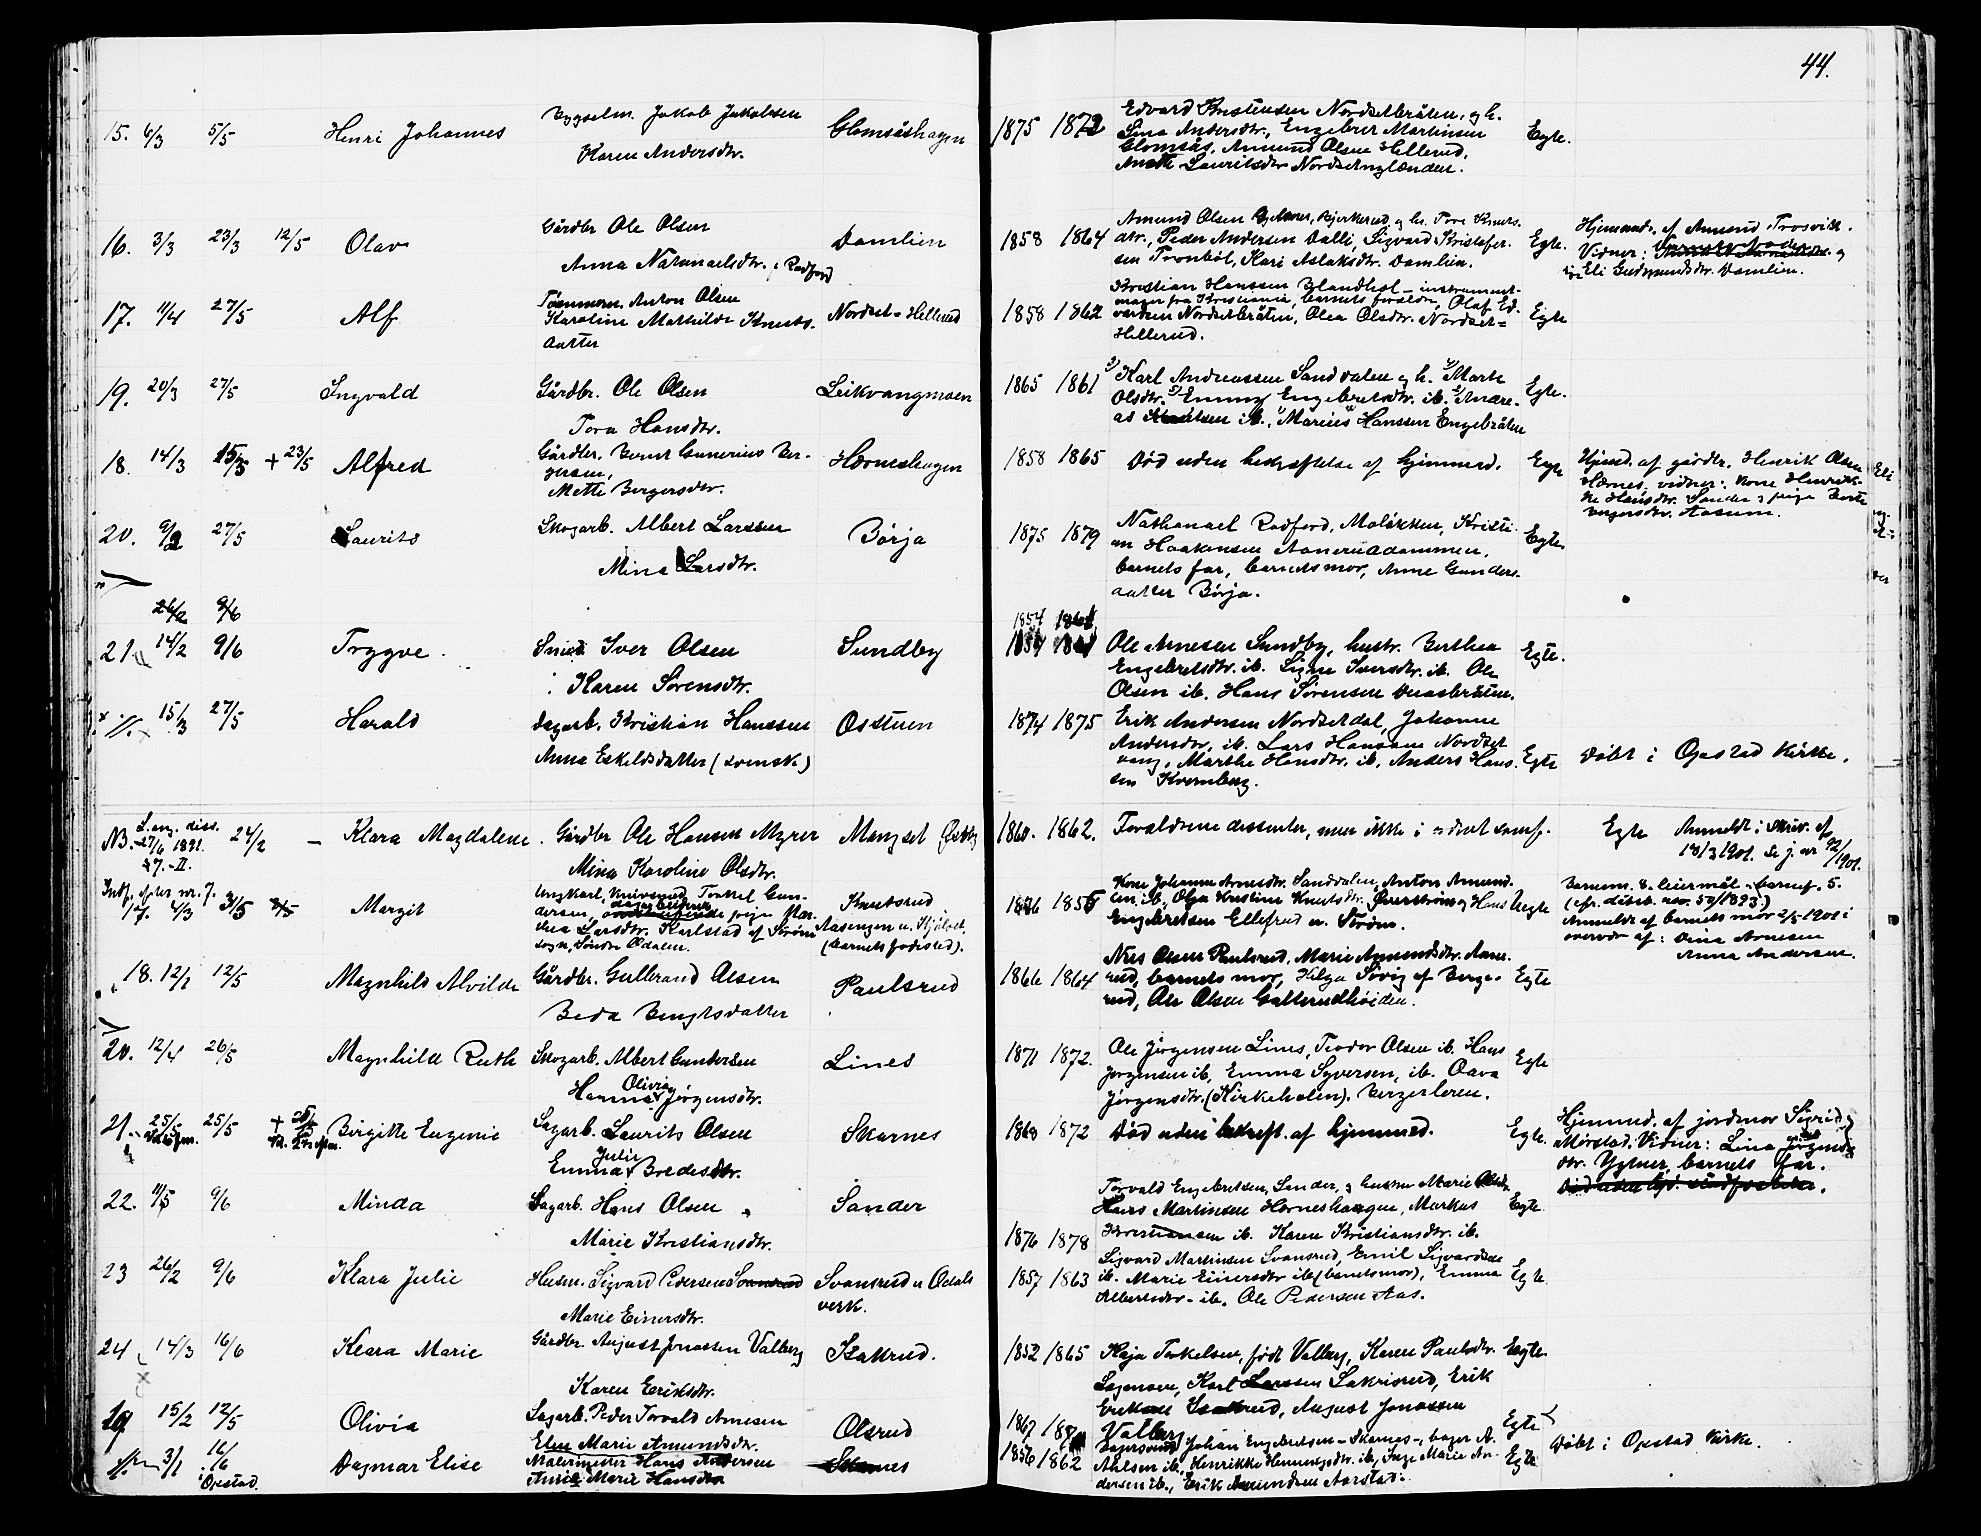 44.
15. 6/3 5/5 Henri Johannes
Jakob Jakobsen
Karen Andersdtr.
Glomsåshagen
1875 1872
Edvard Kristensen Nordsetbråten, og h.
Lina Andersdtr., Engebret Martinsen
Glomsås, Amund Olsen Hellerud,
Anette Lauritsdtr Nordsetnglænden.
Egte.
16. 3/3 23/3 12/5 Olav
Gårdbr Ole Olsen
Anna Natanaelsdtr. : Radford
Damlien
1858 1864
Amund Olsen Bjerkerud og h. Tora Knuts-
dtr., Peder Andersen Dalli, Sigvard Kristofer-
sen Tronbøl, Kari Aslaksdtr. Damlien.
Egte.
Hjemmed. af Amund Trosvik.
Vidner: og
Eli Gudmundsdtr. Damlien.
17. 11/4 27/5 Alf
Anton Olsen
Karoline Mathilde Knuts-
datter
Nordset-Hellerud
1858 1862
Kristian Hanssen Blandhol - instrument-
mager fra Kristiania, barnets forældre, Olaf Ed-
vardsen Nordsetbråten, Olea Olsdtr. Nordset-
Hellerud.
Egte
19. 20/3 27/5 Ingvald
Gårdbr. Ole Olsen
Tora Hansdtr.
Leikvangmoen
1865 1861
Karl Andreassen Sanddalen og h. Marte
Olsdtr. Emma Engebretsdtr. ib. Andre-
as Knutsen ib., Marius Hanssen Engebråten
Egte.
18. 14/3 15/3 + 23/5 Alfred
Gårdbr. Bernt Gunerius Ber-
gersen,
Mette Bergersdtr.
Horneshagen
1858 1865
Død uden bekræftelse af hjemmed.
Egte
Hjemd. af gårdbr. Henrik Olsen
Hornes. vidner: Kone Henrik-
ke Hansdtr. Sander & pige Berte
Aasum.
20. 9/2 27/5 Laurits
Skogarb. Albert Larssen
Mina Larsdtr.
Børja
1875 1879
Nathanael Radford, Moløkken, Kristi-
an Haakonsen Aaneruddammen,
barnets far, barnets mor, Anne Gunders-
datter Børja.
Egte.
26/2 9/6
1854 1861
21 14/2 9/6 Trygve.
Smed Iver Olsen
Karen Sørensdtr.
Sundby
Ole Arnesen Sundby, hustr. Berthea
Engebretsdtr. ib. Signe Iversdtr. ib. Ole
Olsen ib. Hans Sørensen
Egte.
15/3 27/5 Harald
Dagarb. Kristian Hanssen
Anna Eskildsdatter (svensk)
Osstuen
1874 1875
Erik Andersen Nordsetdal, Johanne
Andersdtr. ib. Lars Hanssen Nordset
vang, Marthe Hansdtr. ib. Anders Hans-
sen Kvernberg.
Egte
Døbt i Opstad Kirke.
NB. L. ang. diss.
27/6 1891.
§7.-II.
24/2 – Klara Magdalene.
Gårdbr Ole Hansen Myrer
Mina Karoline Olsdtr.
Mangset
1860. 1862.
Forældrene dissenter, men ikke i ordnet samf.
Egte
Anmeldt i skriv. af
18/3 1901. Se j. nr 92/1901.
Indf. efter nr. 7.
17. 4/3 3/5 Margit
Ungkarl, Torkel Gun-
dersen, pige Mar-
thea Larsdtr. Karlstad af Strøm
sogn, Søndre Odalen.
Knutsrud
Aasengen u. Kjølset
(barnets fødested).
1876 1856
Kone Johanne Arnesdtr. Sanddalen, Anton Amund-
sen ib., Olga Kristine Knutsdtr. Øverstrøm og Hans
Engebretsen Ellefrud u. Strøm.
Uegte
Barnem. 8. leiermål - barnef. 5.
Anmeldt af barnets mor 2/5-1901 i
overvær af: Dina Arnesen
Anna Andersen.
18. 12/1 12/5 Magnhild Alvilde
Gårdbr. Gulbrand Olsen
Beda Bengtsdatter
Paulsrud
1866 1864
Nils Olsen Paulsrud, Marie Amundsdtr. Aane-
rud, barnets mor, Helga Søvig af Berge-
rud, Ole Olsen Gallerudhøiden.
Egte
20. 12/4 26/5 Magnhild Ruth
Skogarb. Albert Gundersen
Olivia
Hanna Jørgensdtr.
Lines
1871 1872.
Ole Jørgensen Lines, Teodor Olsen ib. Hans
Jørgensen ib, Emma Syversen, ib. Oava
Jørgensdtr. (Kirkeholen), Bergerloren.
Egte
21. 25/5 25/5 + Birgitte Eugenie
Sagarb. Laurits Olsen
Julie
Emma Bredesdtr.
Skarnes
1869 1872
Død uden bekræft. af hjemmed.
Egte.
Hjemmed. af jordmor Sigrid
Mørstad. Vidner: Lina
dtr. barnets far.
22. 11/5 9/6 Minda
Sagarb. Hans Olsen
Marie Kristiansdtr.
Sander
1876 1878
Torvald Engebretsen, Sander, & hustru Marie Olsdtr
Hans Martinsen Horneshagen, Markus
Kristiansen ib. Karen Kristiansdtr. ib.
Egte.
23 26/2 9/6 Klara Julie
Husm. Sigvard Pedersen Svansrud
Marie Einersdtr.
Svansrud u Odals
verk.
1857 1863
Sigvard Martinsen Svansrud, Emil Sigvardsen
ib. Marie Einersdtr ib (barnets mor), Emma
Albertsdtr - ib. Ole Pedersen Aas.
Egte.
24 14/3 16/6 Klara Marie
Gårdbr. August Jonassen Valberg
Karen Eriksdtr.
Isakrud.
1852 1865
Kaja Torkelsen, født Valberg, Karen Paulsdtr.
Sagmoen, Karl Larssen Sakrisrud, Erik
Eriksen Isakrud, August Jonassen
Valberg
Egte.
19 15/2 12/5 Olivia
Sagarb. Peder Torvald Arnesen
Eline Marie Amundsdtr.
Olsrud
1867
Egte
3/1 16/6 Dagmar Elise
i Opstad.
Malermester Hans Andersen
Marie Hansdtr
Skarnes
1856 1862
Johan Engebretsen - Skarnes -, bager A.
Ahlsen ib., Henrikke Henningsdtr. ib., Inge Marie An-
dersen ib., Erik Amundsen Aarstad.
Egte
Døbt i Opstad Kirke.